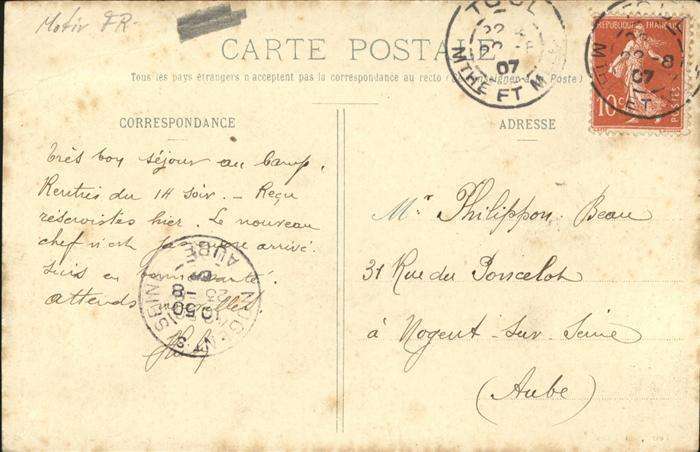 Motiv FR.
CARTE POSTALE
Tous les pays étrangers n'acceptent pas la correspondance au recto (Se renseigner à la Poste)
CORRESPONDANCE
Très bon séjour au Camp.
Rentrés du 14 soir. – Reçu
réservistes hier. Le nouveau
chef n'est pas encore arrivé.
Suis en bonne santé.
attends nouvelles
TOUL
07
MTHE ET M
10c
REPUBLIQUE FRANÇAISE
POSTES
8
07
ADRESSE
Mr Philippon-Beau
31 Rue du Poncelot
à Nogent-sur-Seine
(Aube)
NOGENT S SEINE
AUBE
23
8